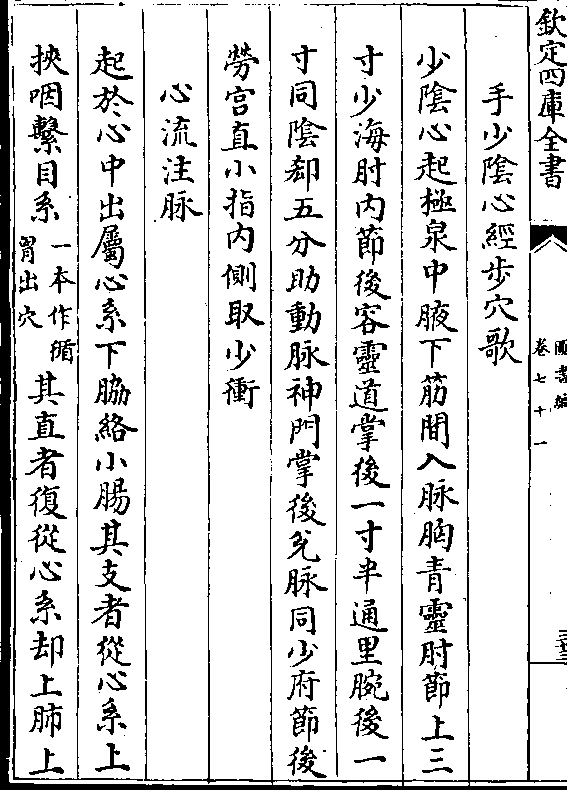 欽定四庫全書
圖書編
卷七十一
手少陰心經步穴歌
少陰心起極泉中腋下筋間入脉胸青靈肘節上三
寸少海肘内節後容靈道掌後一寸半通里腕後一
寸同陰郄五分助動脉神門掌後兊脉同少府節後
勞宫直小指内側取少衝
心流注脉
起於心中出屬心系下膈絡小腸其支者從心系上
挾咽繫目系一本作循胃出穴其直者復從心系却上肺上